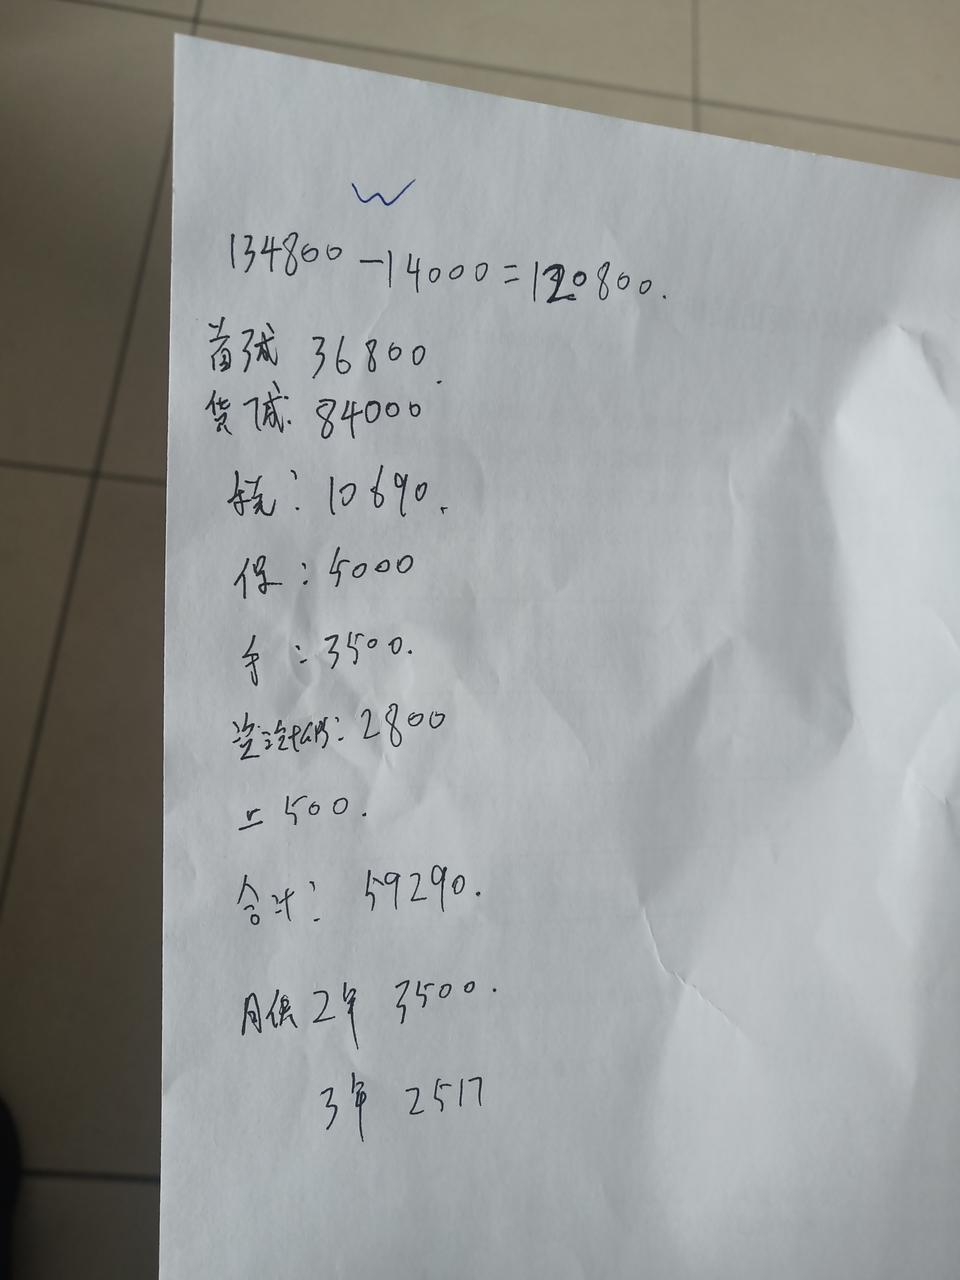 134800-14000=120800.
首弍 36800.
货弍: 84000
税: 10690.
保: 5000
手: 3500.
2800
上 500.
合计: 59290.
月供 2年 3500.
3年 2517